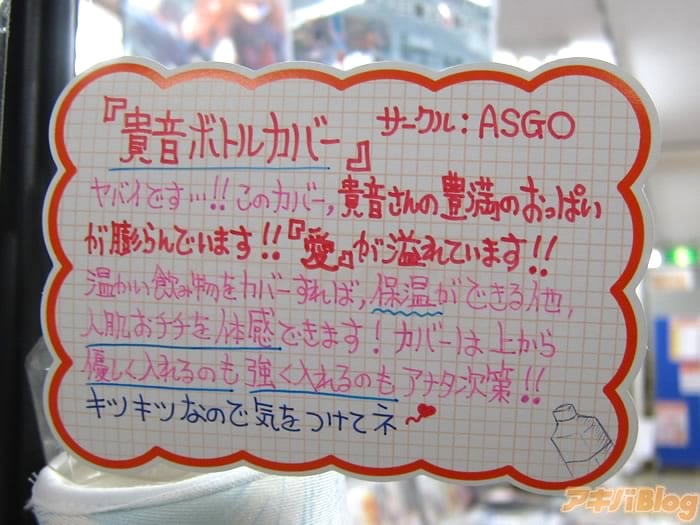 『貴音ボトルカバー』 サークル：ASGO
ヤバイです…!! このカバー, 貴音さんの豊満のおっぱい
が膨らんでいます!! 『愛』が溢れています!!
温かい飲み物をカバーすれば, 保温ができる他,
人肌おチチを体感できます! カバーは上から
優しく入れるのも強く入れるのもアナタ次第!!
キツキツなので気をつけてネ
アキバBlog